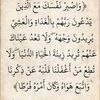 وَاصْبِرْ نَفْسَكَ مَعَ الَّذِينَ
يَدْعُونَ رَبَّهُم بِالْغَدَاةِ وَالْعَشِيِّ
يُرِيدُونَ وَجْهَهُ ۖ وَلَا تَعْدُ عَيْنَاكَ
عَنْهُمْ تُرِيدُ زِينَةَ الْحَيَاةِ الدُّنْيَا ۖ وَلَا
تُطِعْ مَنْ أَغْفَلْنَا قَلْبَهُ عَن ذِكْرِنَا
وَاتَّبَعَ هَوَاهُ وَكَانَ أَمْرُهُ فُرُطًا